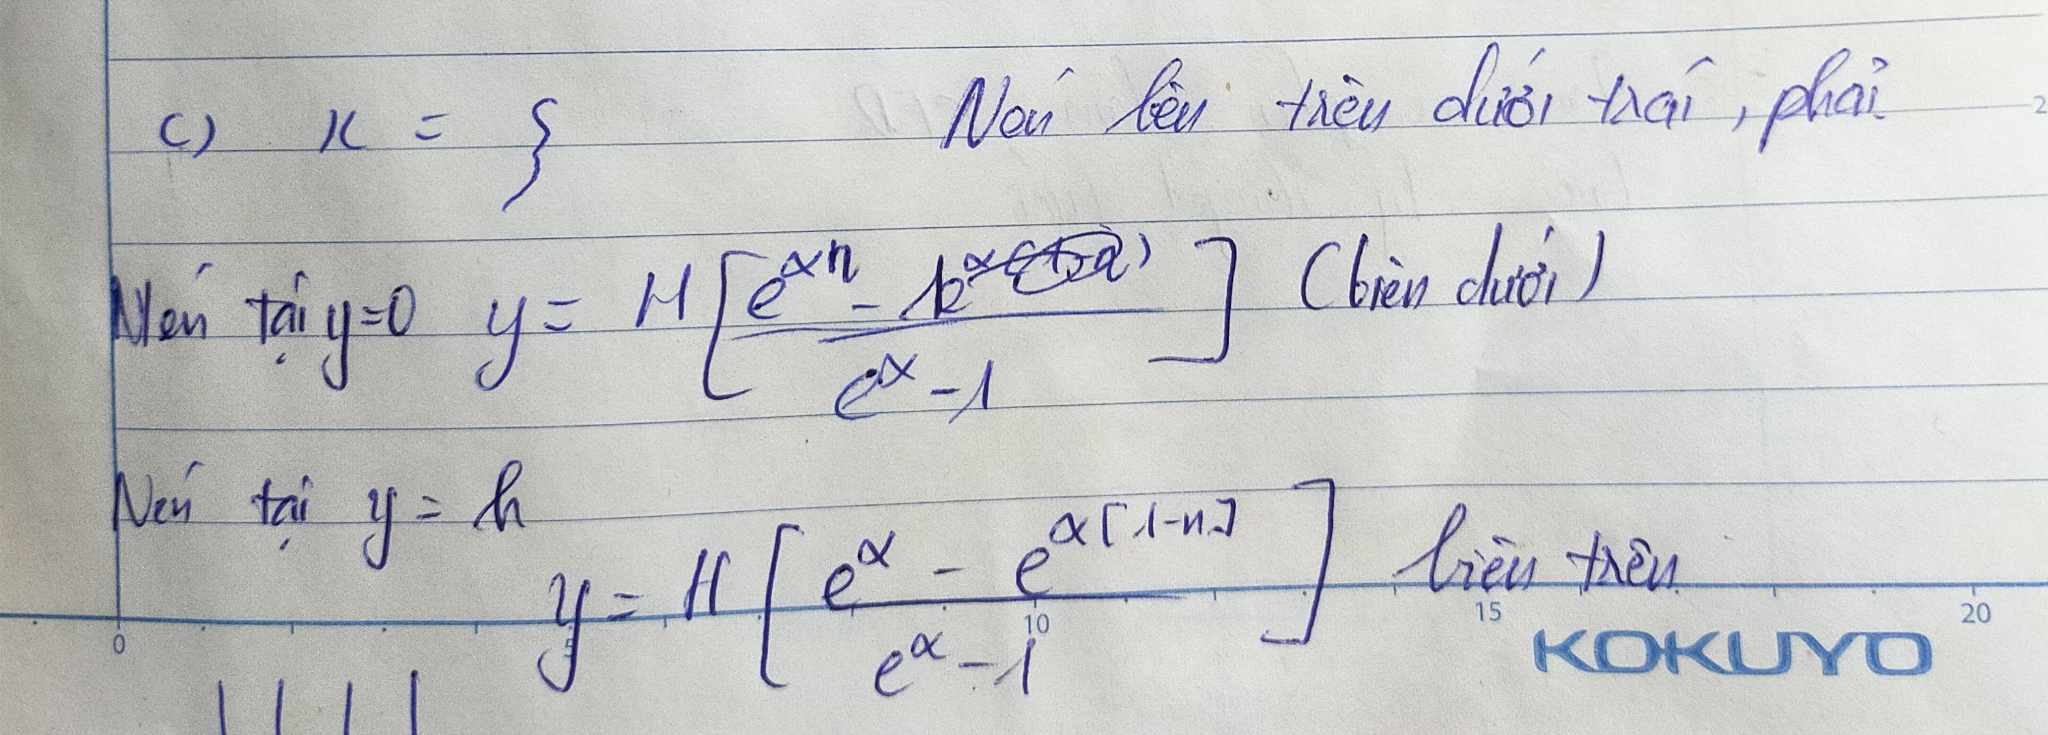 c) x = ξ Nén bên trên dưới trái, phải
Nén tại y=0 y = H [ (e^{αη} - 1) / (e^α - 1) ] (biên dưới)
Nén tại y = h
y = H [ (e^α - e^{α[1-η]}) / (e^α - 1) ] biên trên
0 5 10 15 20
KOKUYO